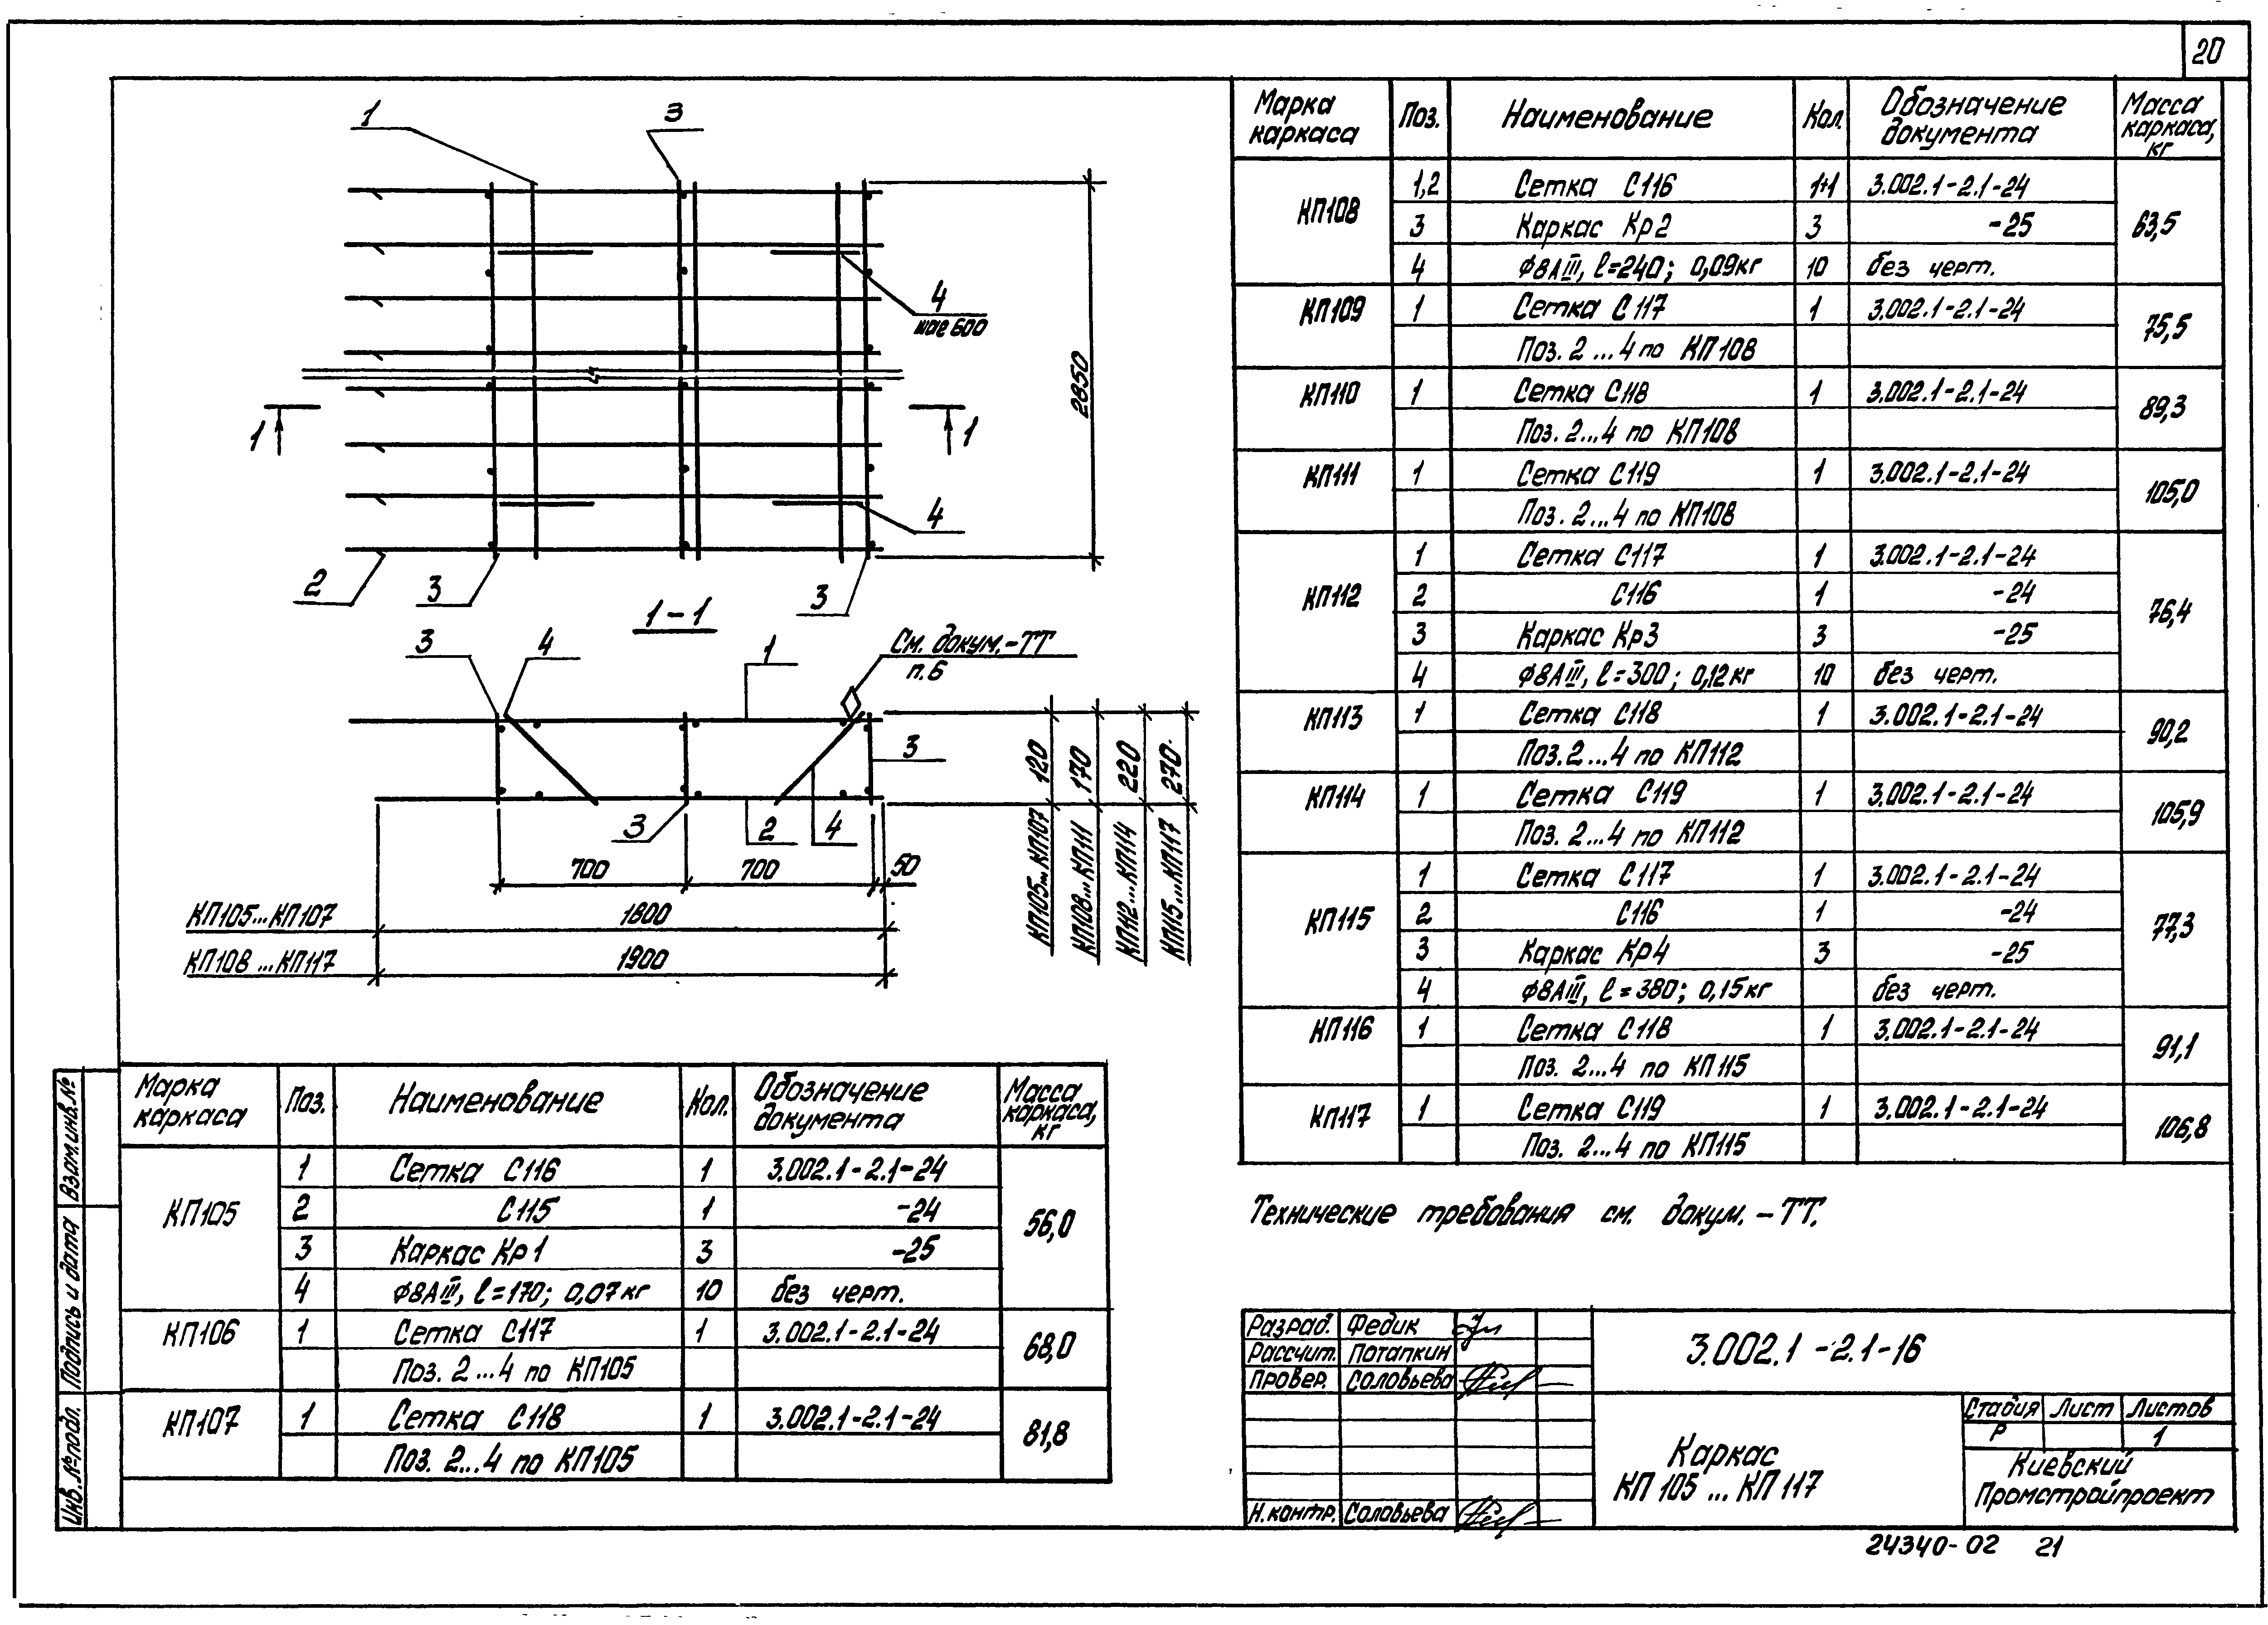 20
1
3
4
шаг 600
2850
1
1
4
2
3
3
1-1
3
4
1
См. докум.-ТТ
п.6
3
3
2
4
120
170
220
270
КП105...КП107
КП108...КП111
КП112...КП114
КП115...КП117
700
700
50
КП105...КП107
1800
КП108...КП117
1900
Марка каркаса Поз. Наименование Кол. Обозначение документа Масса каркаса, кг
КП105 1 Сетка С116 1 3.002.1-2.1-24 56,0
2 С115 1 -24
3 Каркас Кр1 3 -25
4 ф8АIII, l=170; 0,07кг 10 без черт.
КП106 1 Сетка С117 1 3.002.1-2.1-24 68,0
Поз. 2...4 по КП105
КП107 1 Сетка С118 1 3.002.1-2.1-24 81,8
Поз. 2...4 по КП105
Марка каркаса Поз. Наименование Кол. Обозначение документа Масса каркаса, кг
КП108 1,2 Сетка С116 1+1 3.002.1-2.1-24 63,5
3 Каркас Кр2 3 -25
4 ф8АIII, l=240; 0,09кг 10 без черт.
КП109 1 Сетка С117 1 3.002.1-2.1-24 75,5
Поз. 2...4 по КП108
КП110 1 Сетка С118 1 3.002.1-2.1-24 89,3
Поз. 2...4 по КП108
КП111 1 Сетка С119 1 3.002.1-2.1-24 105,0
Поз. 2...4 по КП108
КП112 1 Сетка С117 1 3.002.1-2.1-24 76,4
2 С116 1 -24
3 Каркас Кр3 3 -25
4 ф8АIII, l=300; 0,12кг 10 без черт.
КП113 1 Сетка С118 1 3.002.1-2.1-24 90,2
Поз. 2...4 по КП112
КП114 1 Сетка С119 1 3.002.1-2.1-24 105,9
Поз. 2...4 по КП112
КП115 1 Сетка С117 1 3.002.1-2.1-24 77,3
2 С116 1 -24
3 Каркас Кр4 3 -25
4 ф8АIII, l=380; 0,15кг без черт.
КП116 1 Сетка С118 1 3.002.1-2.1-24 91,1
Поз. 2...4 по КП115
КП117 1 Сетка С119 1 3.002.1-2.1-24 106,8
Поз. 2...4 по КП115
Технические требования см. докум.-ТТ.
Взам.инв.№
Подпись и дата
Инв.№подл.
Разраб. Федик
Рассчит. Потапкин
Провер. Соловьева
Н.контр. Соловьева
3.002.1-2.1-16
Каркас
КП 105 ... КП 117
Стадия Лист Листов
Р 1
Киевский
Промстройпроект
24340-02 21